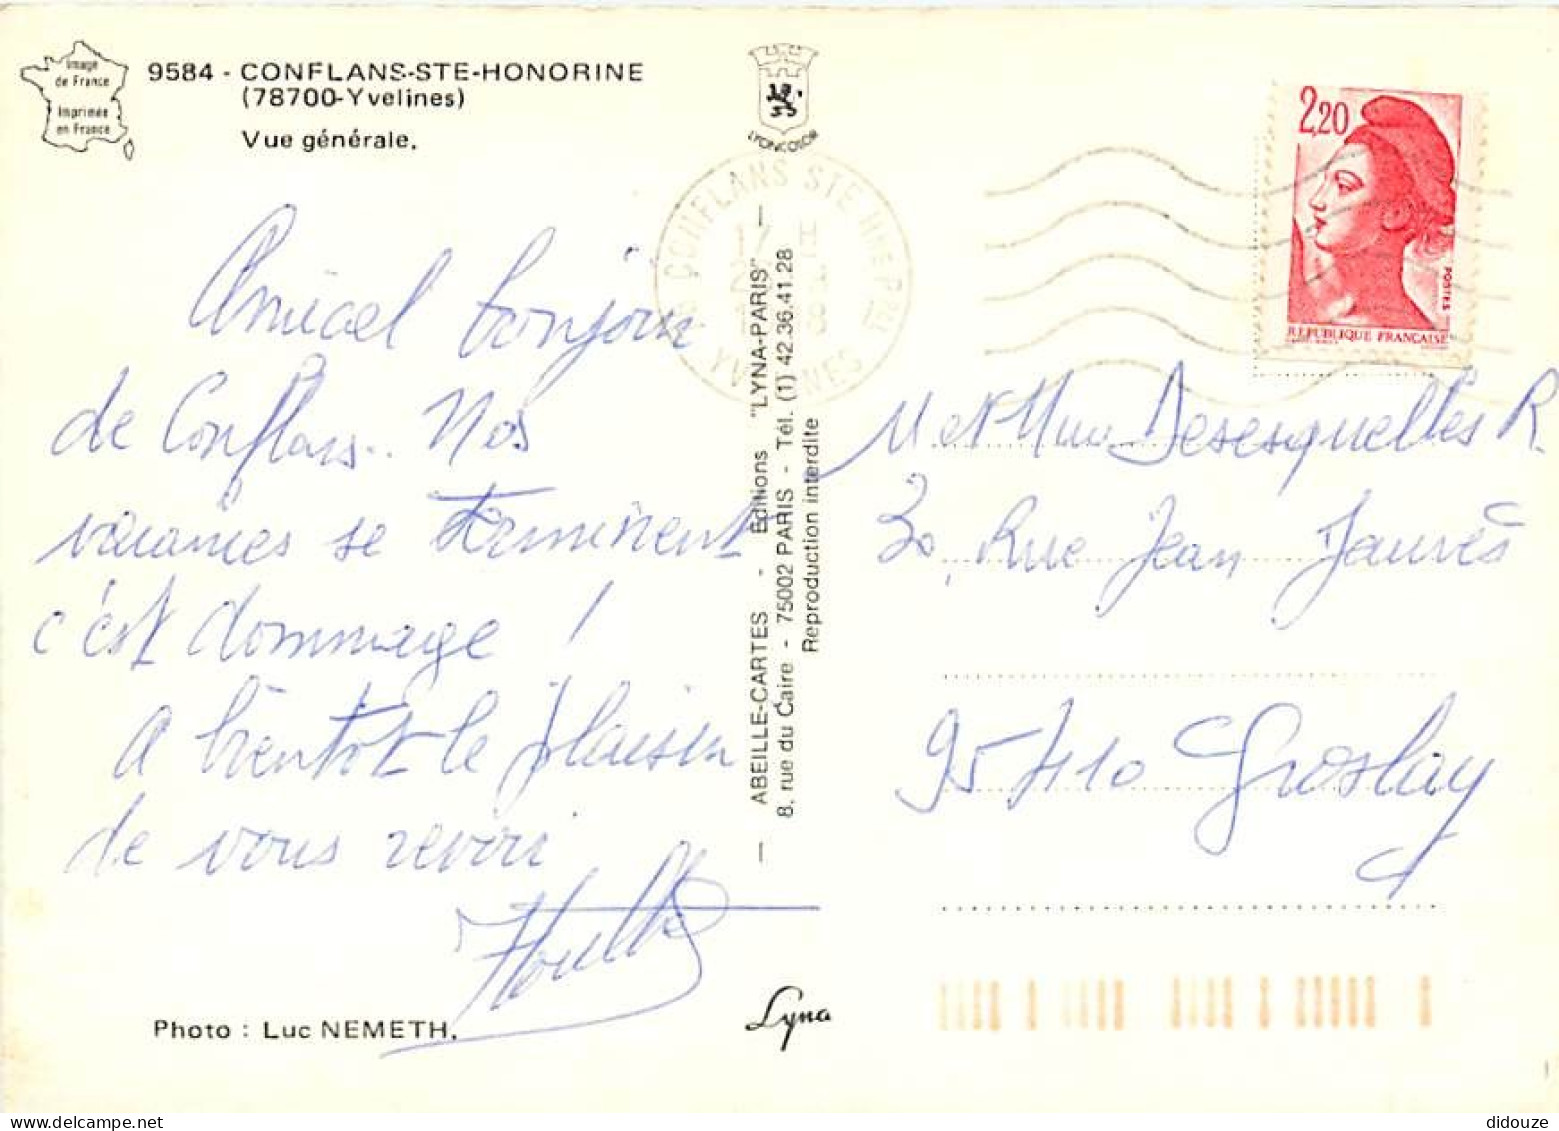 Image
de France
Imprimée
en France
9584 - CONFLANS-STE-HONORINE
(78700-Yvelines)
Vue générale.
LYONCOLOR
CONFLANS STE Hne Pal
YVELINES
2,20
POSTES
REPUBLIQUE FRANÇAISE
Amical bonjour
de Conflans.. Nos
vacances se terminent
c'est dommage !
A bientôt le plaisir
de vous revoir
— ABEILLE-CARTES - Editions "LYNA-PARIS" —
8, rue du Caire - 75002 PARIS - Tél. (1) 42.36.41.28
Reproduction interdite
M et Mme Desesquelles R.
30, Rue Jean Jaurès
95410 Groslay
Photo : Luc NEMETH.
Lyna
didouze